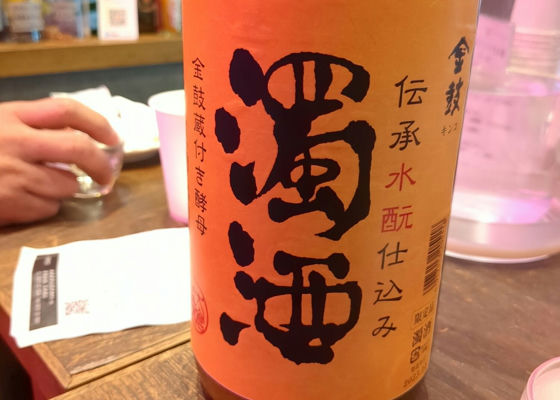 金鼓
キンコ
伝承水酛仕込み
濁酒
金鼓蔵付き酵母
限定品
濁酒